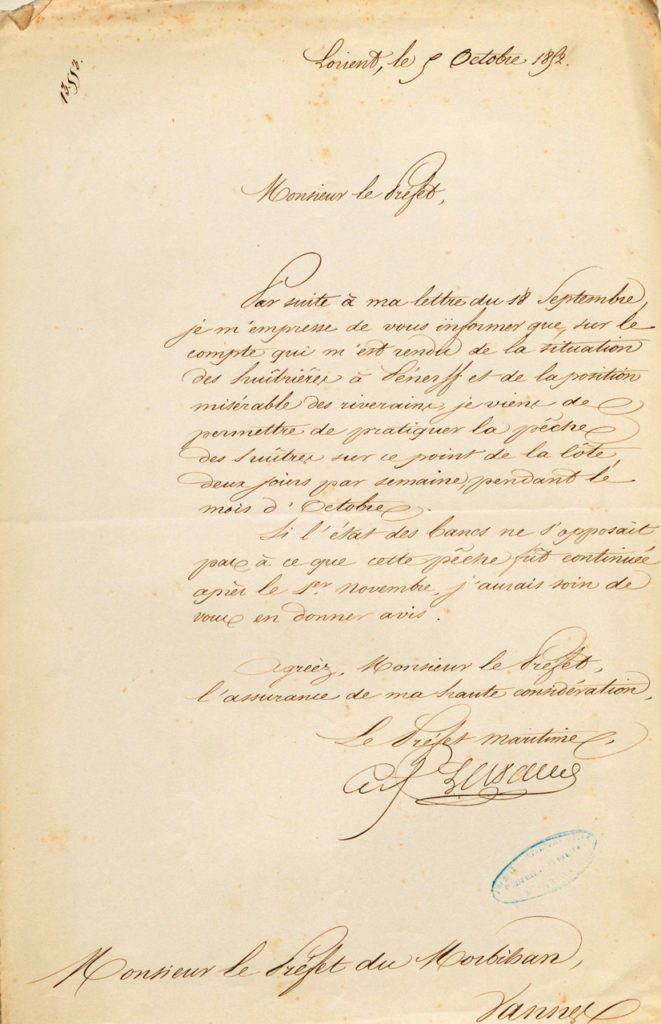 13553.
Lorient, le 5 Octobre 1852.
Monsieur le Préfet,
Par suite à ma lettre du 18 Septembre,
je m'empresse de vous informer que, sur le
compte qui m'est rendu de la situation
des huîtrières à Pénerff et de la position
misérable des riverains, je viens de
permettre de pratiquer la pêche
des huîtres sur ce point de la Côte
deux jours par semaine, pendant le
mois d'Octobre.
Si l'état des bancs ne s'opposait
pas à ce que cette pêche fût continuée
après le 1er Novembre, j'aurais soin de
vous en donner avis.
Agréez, Monsieur le Préfet,
l'assurance de ma haute considération,
Le Préfet maritime,
Monsieur le Préfet du Morbihan,
Vannes